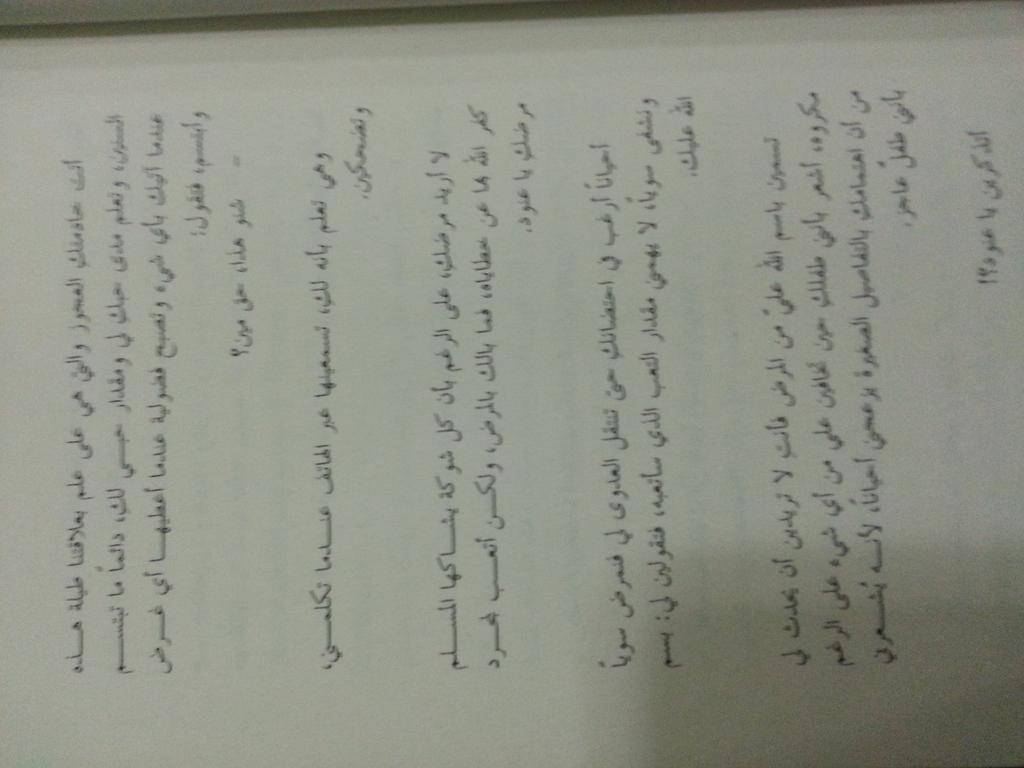 أنت خادمتك العجوز والتي هي على علم بعلاقتنا طيلة هذه
السنين، وتعلم مدى حبك لي ومقدار حبي لك، دائماً ما تبتسم
عندما آتيك بأي شيء وتصبح فضولية عندما أعطيها أي غرض
وأبتسم، فتقول:
- شنو هذا، حق مين؟
وهي تعلم بأنه لك، تسمعينها عبر الهاتف عندما تكلمني،
وتضحكين.
لا أريد مرضك، على الرغم بأن كل شوكة يشاكها المسلم
كفر الله بها عن خطاياه، فما بالك بالمرض، ولكن أتعب بمجرد
مرضك يا عنود.
أحياناً أرغب في احتضانك حتى تنتقل العدوى لي فنمرض سوياً
ونشفى سوياً، لا يهمني مقدار التعب الذي سأتعبه، فتقولين لي: بسم
الله عليك.
تسمين باسم الله عليّ من المرض فأنت لا تريدين أن يحدث لي
مكروه، أشعر بأني طفلك حين تخافين علي من أي شيء على الرغم
من أن اهتمامك بالتفاصيل الصغيرة يزعجني أحياناً، لأنه يُشعرني
بأنني طفلٌ عاجز.
أتذكرين يا عنود؟!